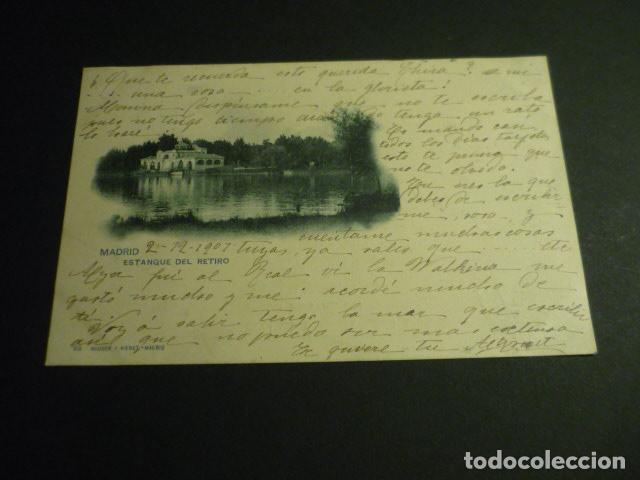 ¿Que te recuerda esto querida Chira? a mi
... una cosa ... en la glorieta!
Monina perdoname que no te escriba
pues no tengo tiempo cuando tenga un rato
lo haré.
Te mando con
todos los dias tarjetas
esto te prueba que
no te olvido.
Tu eres la que
debes de escribir
me, sosa, y
cuentame muchas cosas
MADRID 2-12-1901 tuyas, ya sabes que ... etc
ESTANQUE DEL RETIRO
Allá fuí al Real vi la Walkiria me
gustó mucho y me acordé mucho de
ti
Voy á salir tengo la mar que escribir
así que no puedo ser mas extensa
Te quiere tu
HAUSER Y MENET.-MADRID
todocoleccion.net